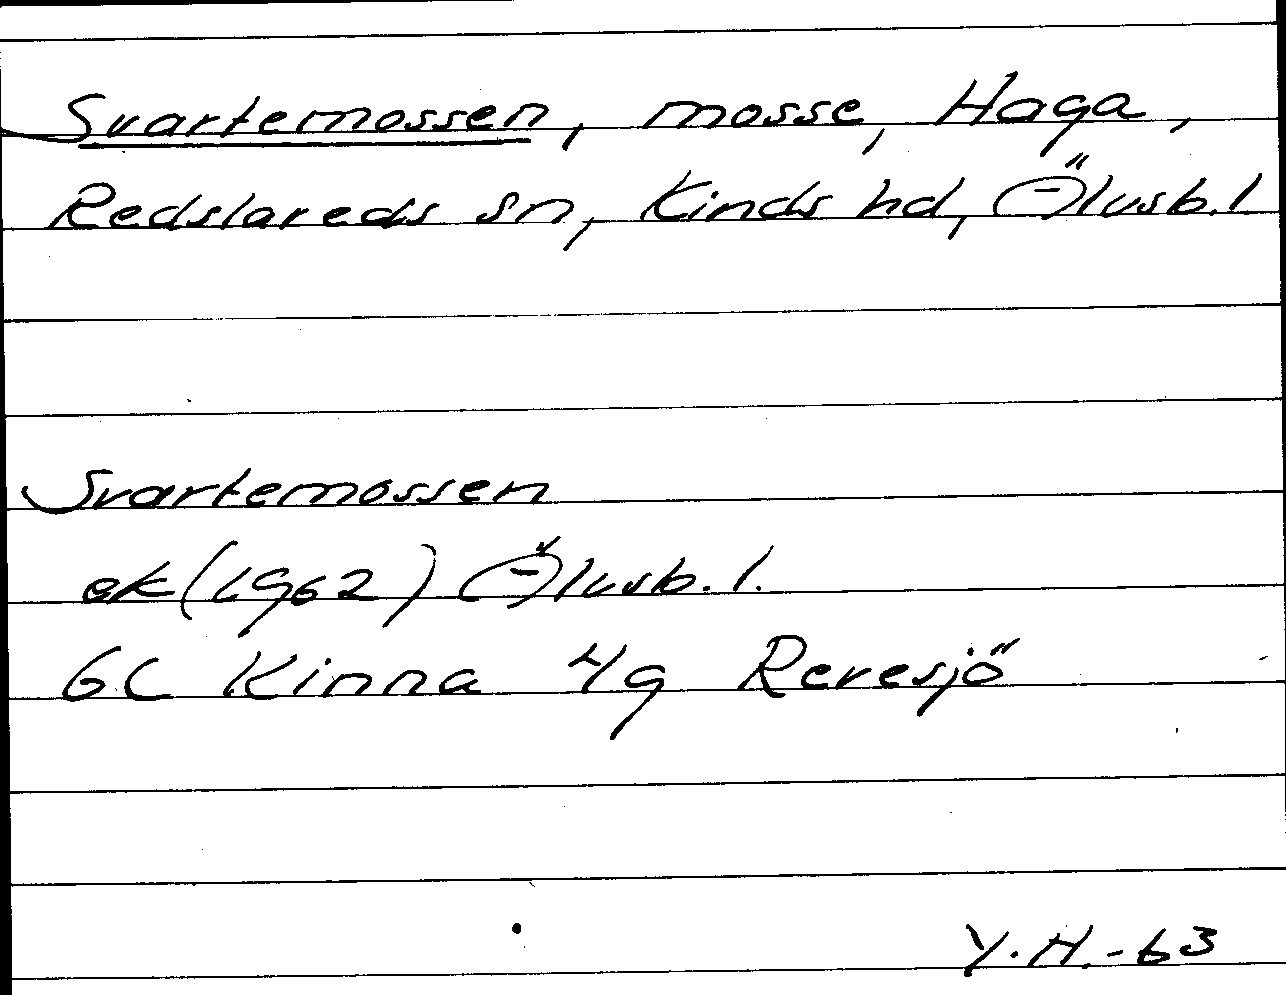 Svartemossen, mosse, Haga,
Redslareds sn, Kinds hd, Älvsb. l.
Svartemossen
ek (1962) Älvsb. l.
6C Kinna 4g Reresjö
Y.H.-63